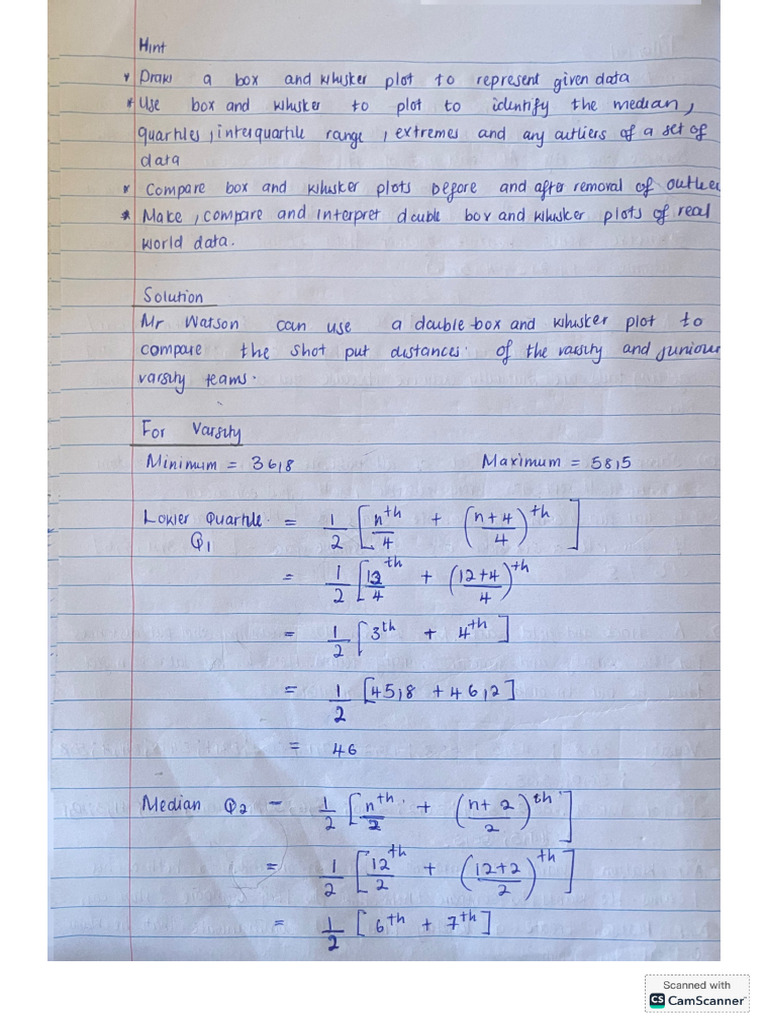 Hint
* Draw a box and whisker plot to represent given data
* Use box and whisker to plot to identify the median,
quartiles, interquartile range, extremes and any outliers of a set of
data
* Compare box and whisker plots before and after removal of outlier
* Make, compare and interpret double box and whisker plots of real
world data.
Solution
Mr Watson can use a double-box and whisker plot to
compare the shot put distances of the varsity and juniour
varsity teams.
For Varsity
Minimum = 36,8 Maximum = 58,5
Lower Quartile Q1 = 1/2 [n/4^th + ((n+4)/4)^th]
= 1/2 [12/4^th + ((12+4)/4)^th]
= 1/2 [3^th + 4^th]
= 1/2 [45,8 + 46,2]
= 46
Median Q2 = 1/2 [n/2^th + ((n+2)/2)^th]
= 1/2 [12/2^th + ((12+2)/2)^th]
= 1/2 [6^th + 7^th]
Scanned with
CS CamScanner